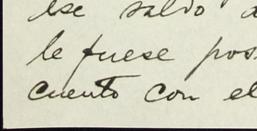 ese saldo a
le fuese pos
cuento con el